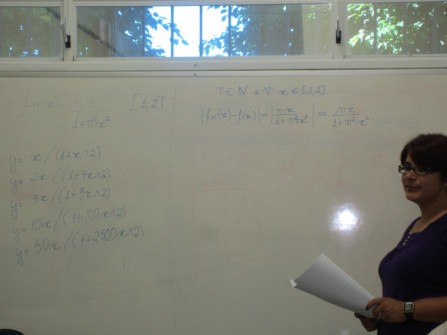 1+n²x²
[1,2]
n∈N e ∀ x∈[1,2]
|fₙ(x)-f(x)| = |nx/(1+n²x²)| = nx/(1+n²x²)
y= x/(1+x^2)
y= 2x/(1+4x^2)
y= 3x/(1+9x^2)
y= 10x/(1+100x^2)
y= 50x/(1+2500x^2)